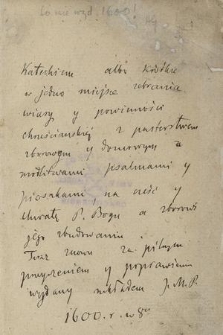 Katechizm albo krótkie
w jedno miejsce zebranie
wiary y powinności
chrześcijańskiej z pasterstwem
zborowym y domowym z
modlitwami psalmami y
piosnkami, na cześć y
chwałę P. Bogu a zborowi
jego zbudowaniu
Teraz znowu za pilnym
przejrzeniem y poprawieniem
wydany nakładem J. M. P.
1600. r. w 8ce